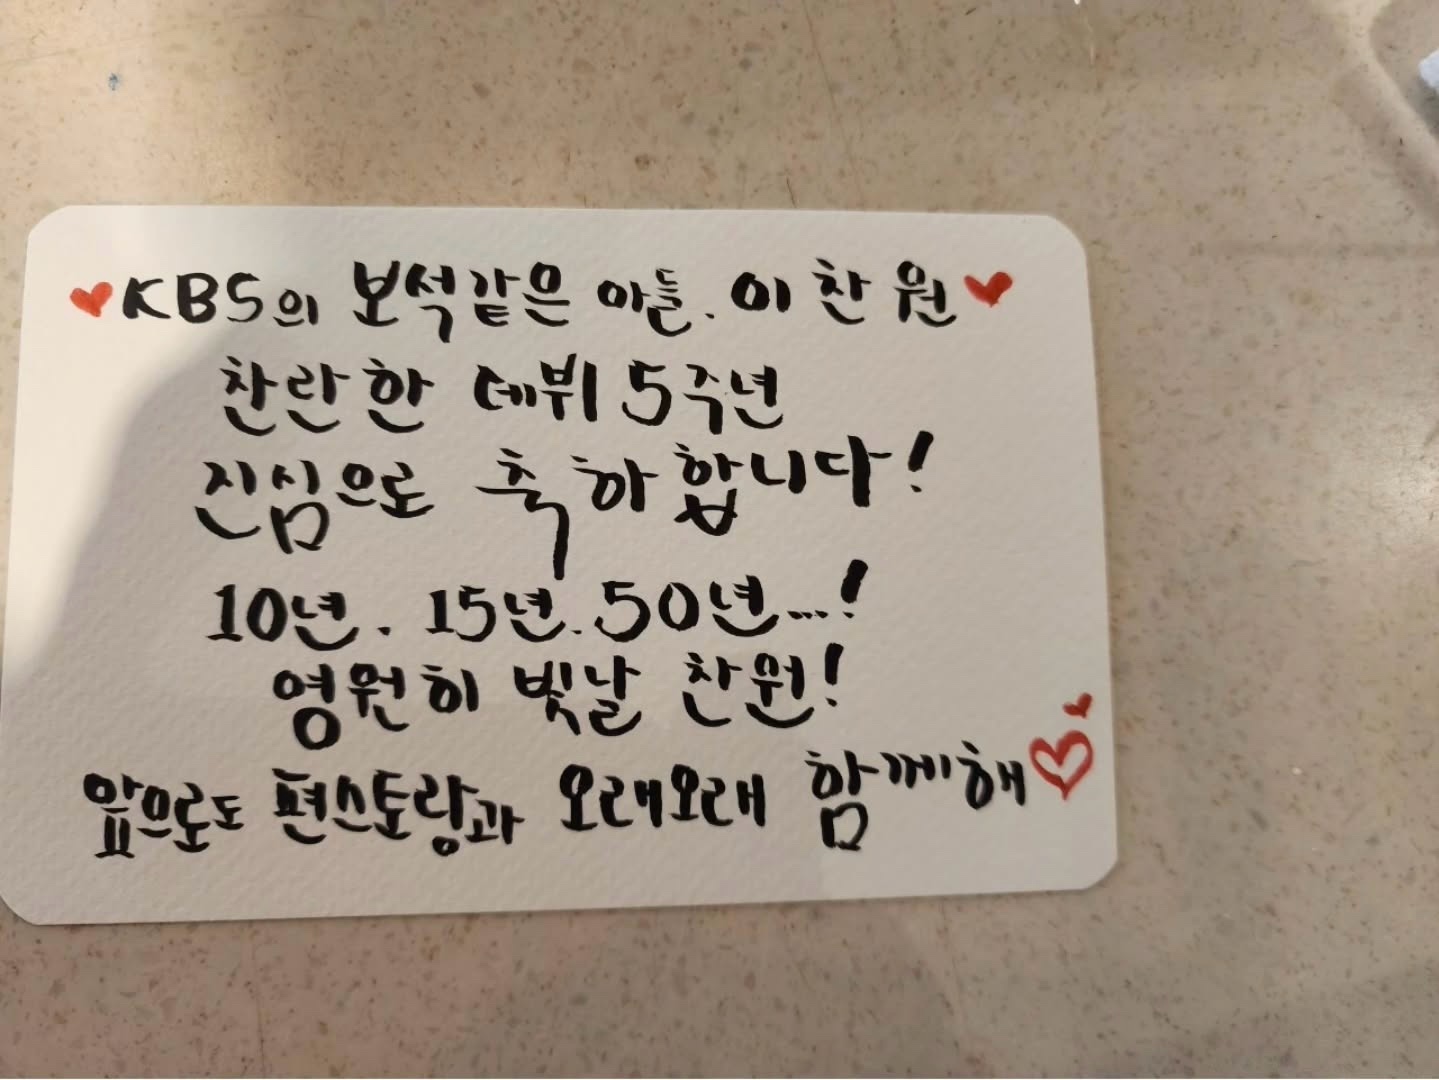 ♥KBS의 보석같은 아들. 이찬원♥
찬란한 데뷔 5주년
진심으로 축하합니다!
10년. 15년. 50년...!
영원히 빛날 찬원!
앞으로도 편스토랑과 오래오래 함께해♡